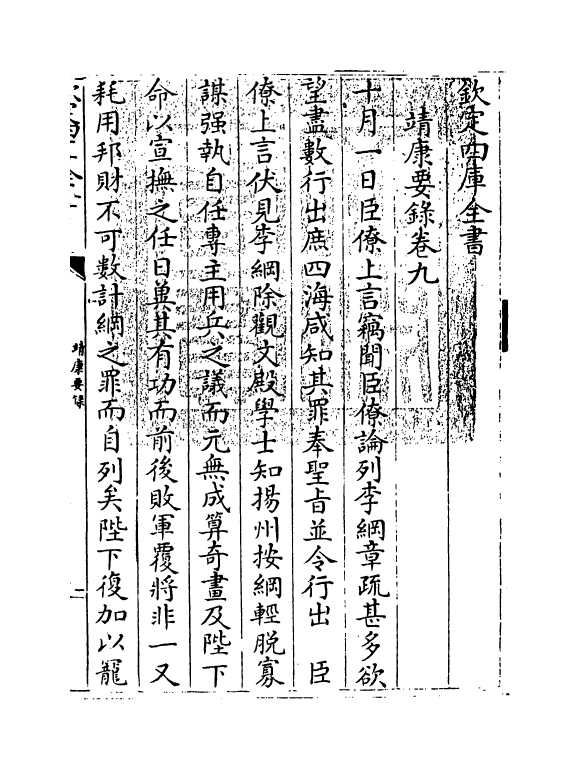 欽定四庫全書
靖康要錄卷九
十月一日臣僚上言竊聞臣僚論列李綱章疏甚多欲
望盡數行出庶四海咸知其罪奉聖旨並令行出　臣
僚上言伏見李綱除觀文殿學士知揚州按綱輕脫寡
謀强執自任專主用兵之議而元無成算奇畫及陛下
命以宣撫之任日冀其有功而前後敗軍覆將非一又
耗用邦財不可數計綱之罪而自列矣陛下復加以寵
靖康要錄
一